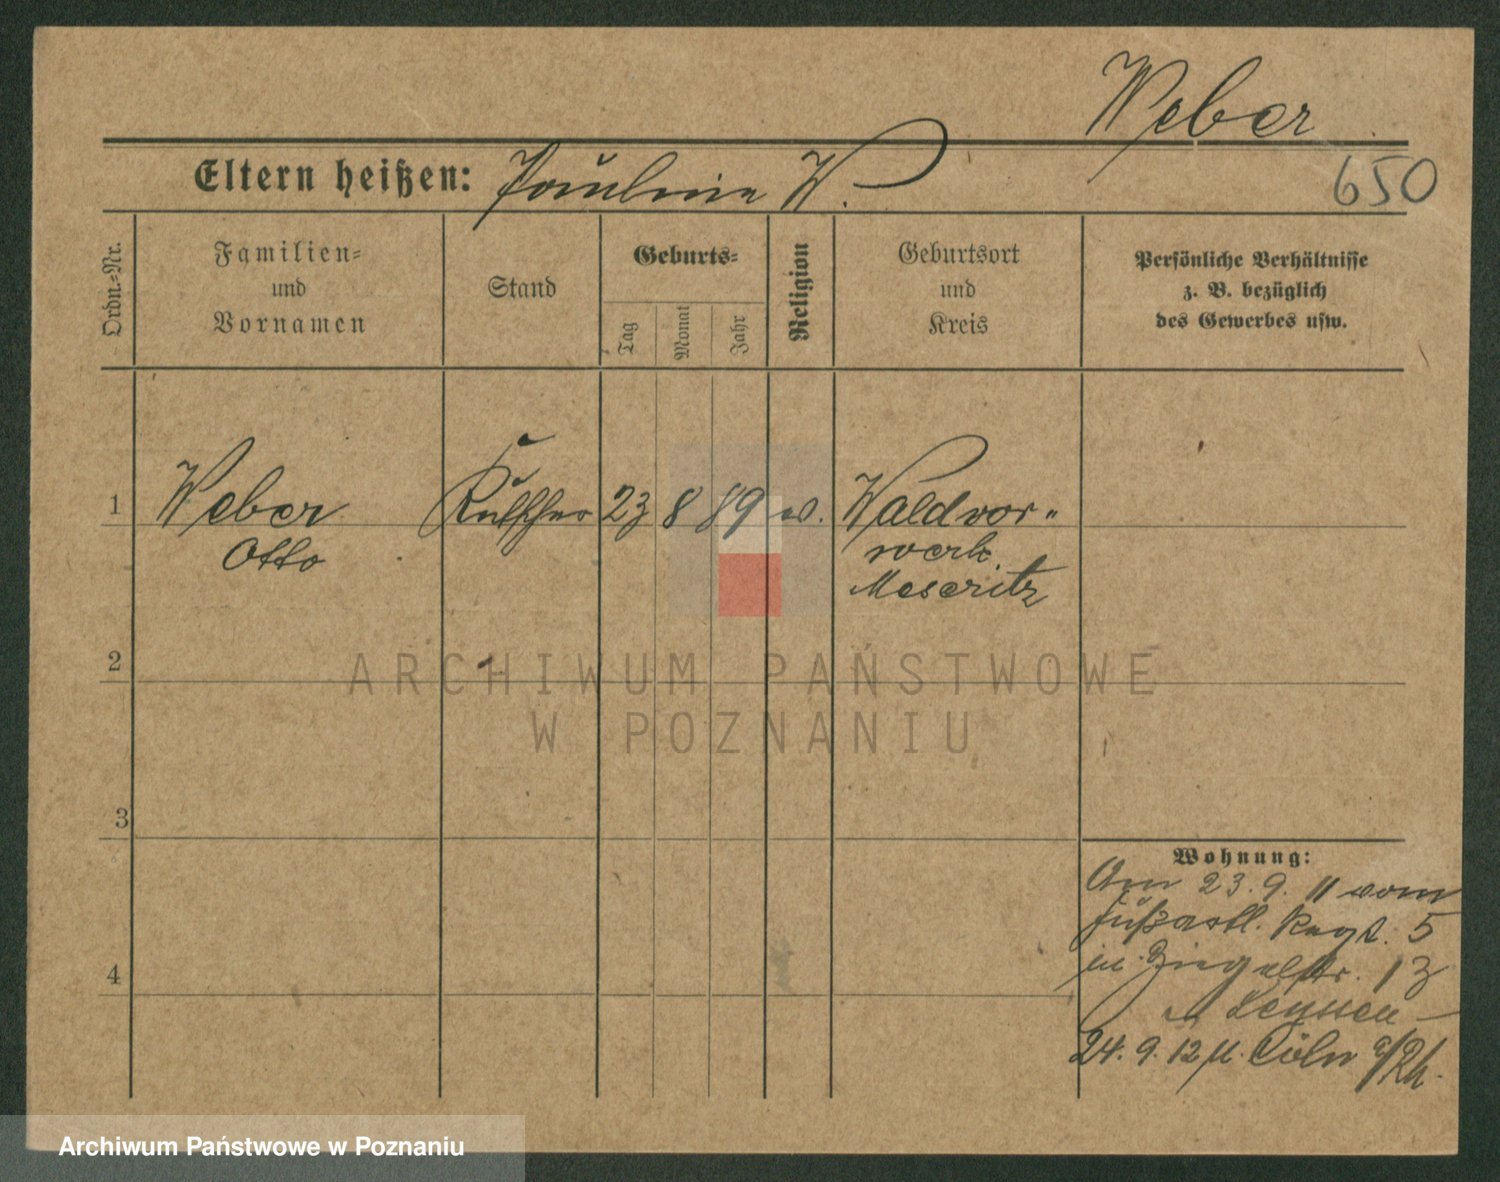 Weber
Eltern heißen: Pauline W.
650
Ordn.-Nr.
Familien-
und
Vornamen
Stand
Geburts-
Tag
Monat
Jahr
Religion
Geburtsort
und
Kreis
Persönliche Verhältnisse
z. B. bezüglich
des Gewerbes usw.
1
Weber Kutscher 23 8 89 Waldvor-
Otto
werk.
Meseritz
2
ARCHIWUM PAŃSTWOWE
W POZNANIU
3
4
Wohnung:
Am 23. 9. 11 vom
Fußartl. Regt. 5
in Ziegelstr. 13
24. 9. 12 n. Cöln a/Rh.
Archiwum Państwowe w Poznaniu